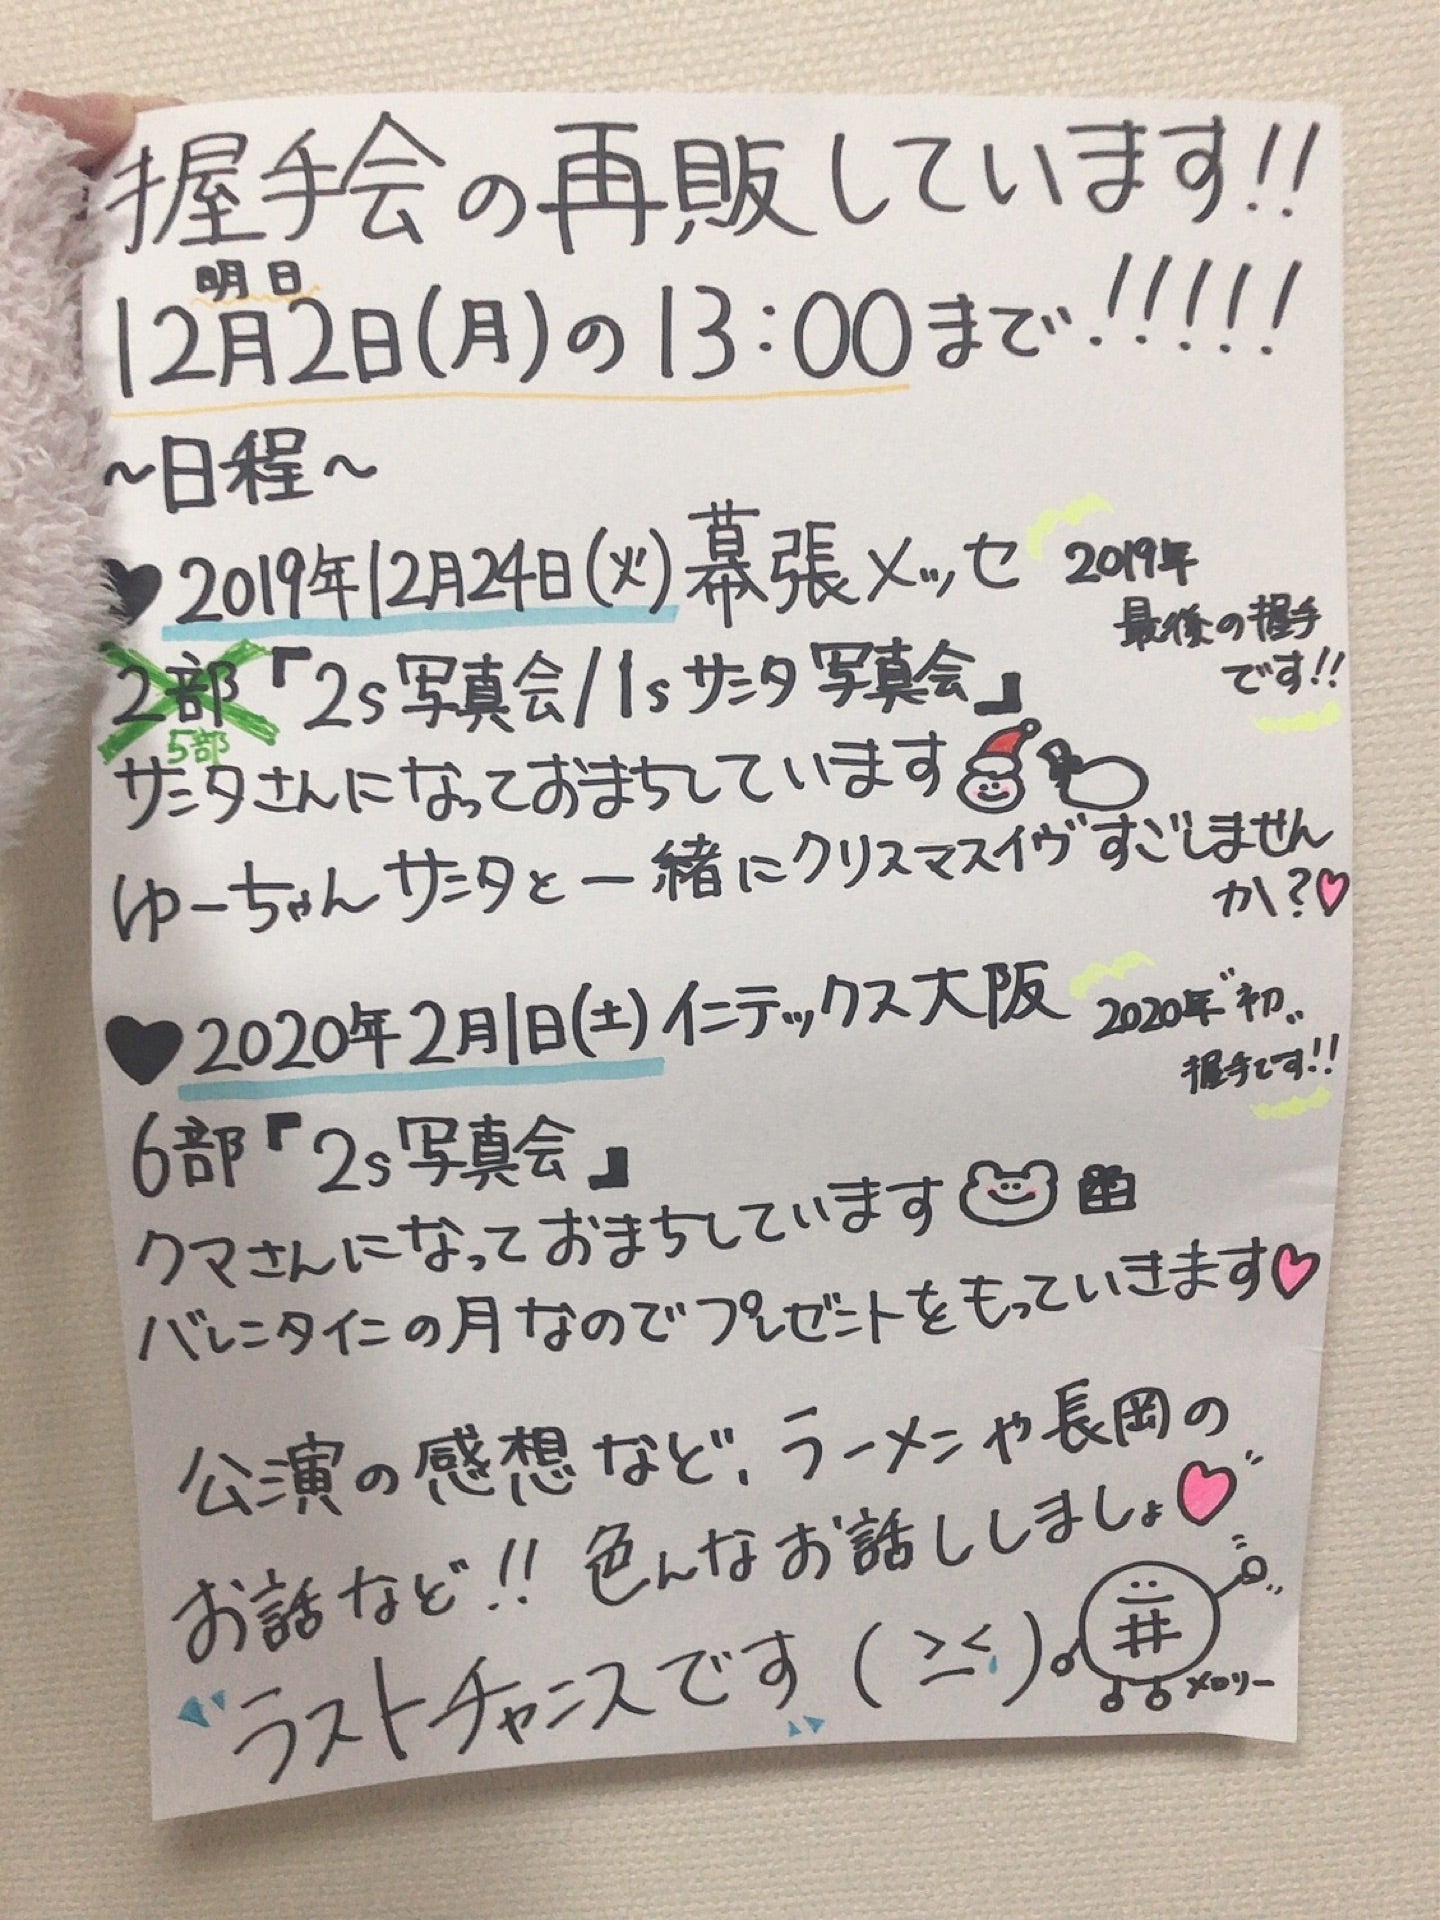 握手会の再販しています!!
明日
12月2日(月)の13:00まで!!!!!
~日程~
♥2019年12月24日(火)幕張メッセ
2019年
最後の握手
です!!
2部『2s写真会/1sサンタ写真会』
5部
サンタさんになっておまちしています
ゆーちゃんサンタと一緒にクリスマスイヴすごしません
か?♡
♥2020年2月1日(土)インテックス大阪
2020年"初"
握手です!!
6部『2s写真会』
クマさんになっておまちしています
バレンタインの月なのでプレゼントをもっていきます♡
公演の感想など、ラーメンや長岡の
お話など!!色んなお話ししましょ♡
"ラストチャンスです"(><)
井
メロリー